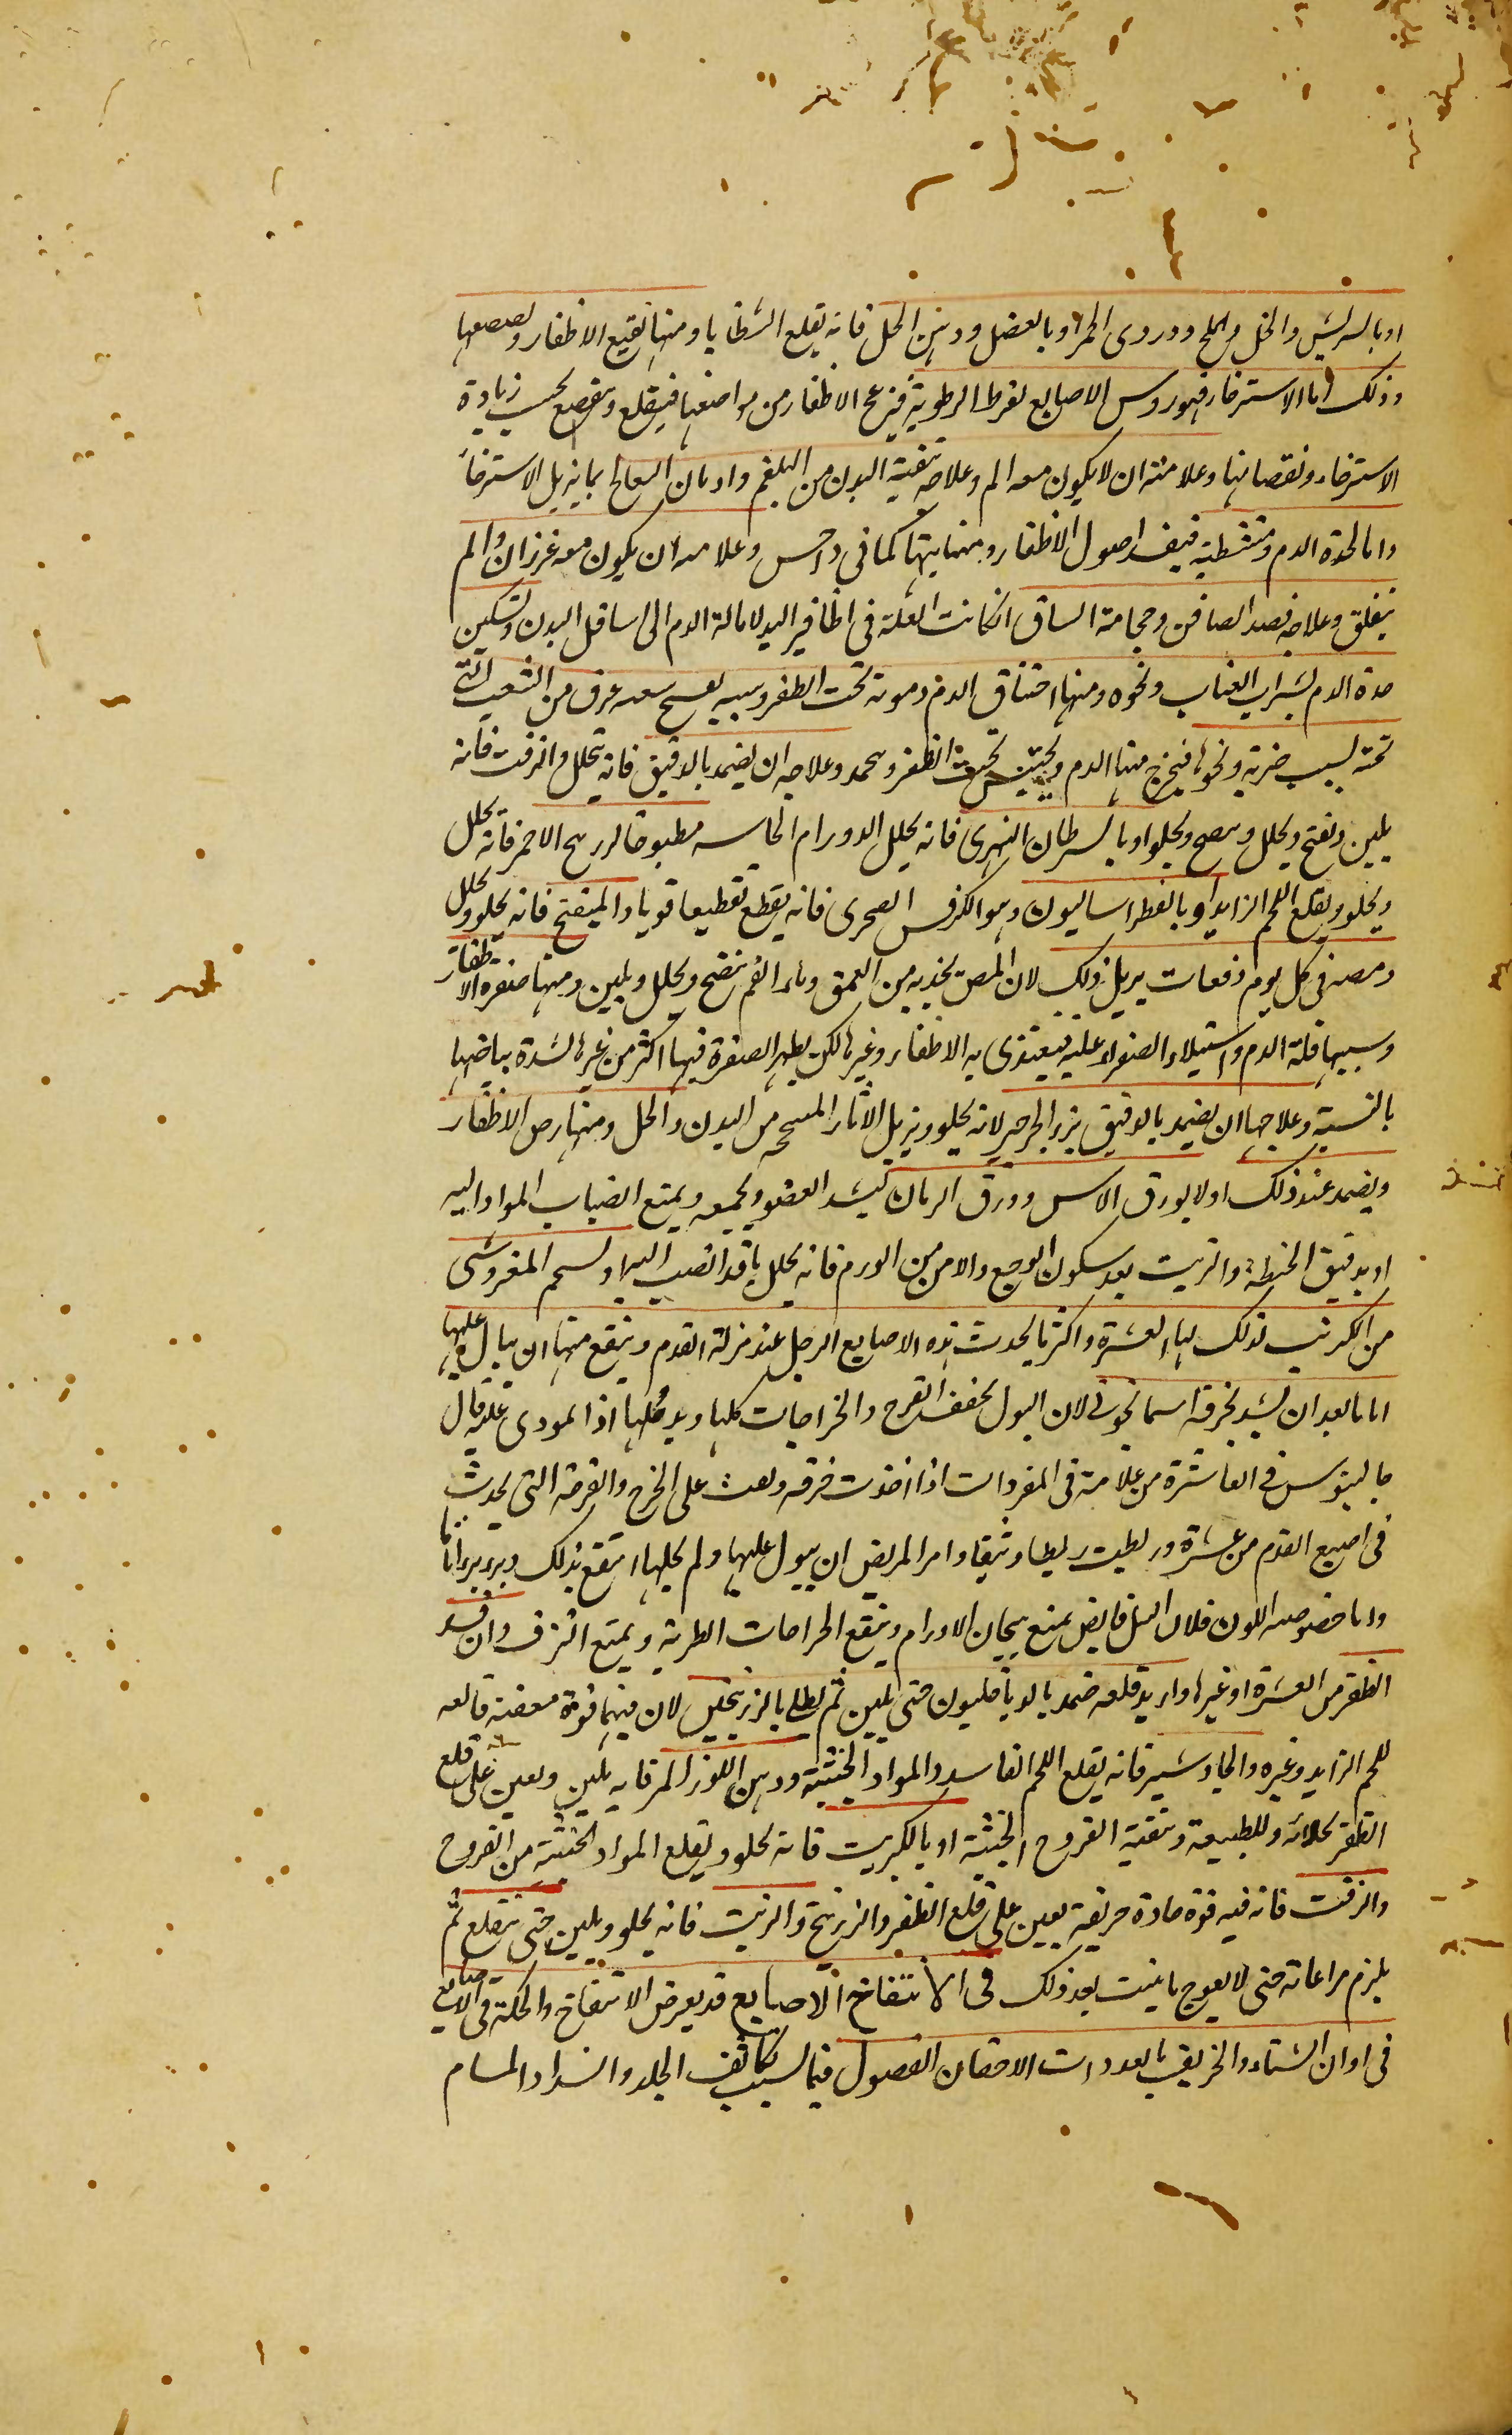 او بالسريش والخل والملح ودردى الخمر او بالعنصل ودهن الخل فانه يقلع الشظايا ومنها تقيع الاظفار وتصعصعها
وذلك اما الاسترخاء فى روس الاصابع لفرط الرطوبة فيزعج الاظفار من مواضعها فيتقلع ويتقصع بحسب زيادة
الاسترخاء ونقصانها وعلامته ان لا يكون معه الم وعلاجه تنقية البدن من البلغم وادمان المعالج بما يزيل الاسترخاء
واما لحدة الدم وتشيطه فيفسد اصول الاظفار ومنابتها كما فى داحس وعلامته ان يكون معه غرزان والم
يقلق وعلاجه فصد الصافن وحجامة الساق ان كانت العلة فى اظافير اليد لامالة الدم الى اسافل البدن وتسكين
حدة الدم بشراب العناب ونحوه ومنها اختناق الدم وموته تحت الظفر وسببه عرق من الشعب التى
تحته لسبب ضربة ونحوها فيخرج منها الدم ويحتبس تحت الظفر ويجمد وعلاجه ان يضمد بالدقيق فانه يحلل والزفت فانه
يلين ويفتح ويحلل وينضج ويجلو او بالسرطان النهرى فانه يحلل الاورام الجاسيه مطبوخا الزرنيخ الاحمر فانه يحلل
ويجلو ويقلع اللحم الزايد او بالفطراساليون وهو الكرفس الصخرى فانه يقطع تقطيعا قويا والميفختج فانه يجلو ويحلل
ومصه فى كل يوم دفعات يزيل ذلك لان المص يجذبه من العمق وماء الفم ينضج ويحلل ويلين ومنها صفرة الاظفار
وسببها قلة الدم واستيلاء الصفراء عليه فيغتذى به الاظفار وغيرها لكن يظهر الصفرة فيها اكثر من غيرها لشدة بياضها
بالنسبة وعلاجها ان يضمد بالدقيق بزر الجرجير لانه يجلو ويزيل الاثار من البدن والخل ومنها رض الاظفار
ويضمد عند ذلك اولا بورق الاس وورق الرمان ليشد العضو ويجمعه ويمنع انصباب المواد اليه
او بدقيق الحنطة والزيت بعد سكون الوجع والامن من الورم فانه يحلل ما قد انصب اليه
من الكبريت لذلك لها العشرة واكثر ما يحدث هذه الاصابع الرجل عند مزلة القدم وينفع منها ان يبال عليها
اما ما بعد ان تشد بخرقة اسمانجونى لان البول يجفف القروح والخراجات كلها ويدملها اذا المودى عليه قال
جالينوس فى العاشرة من علامته فى المفردات اذا اخذت خرقه على الجرح والقرحة التى يحدث
فى اصبع القدم من عشرة وربطت ربطا وثيقا وامر المريض ان يبول عليها ولم يحلها انتفع بذلك وبرء براء تاما
واما خصوصيه اللون فلان النيل قابض يمنع هيجان الاورام وينفع الجراحات الطرية ويمنع النزف وان فسد
الظفر من العشرة او غيرها واريد قلعه ضمد بالدياخليون حتى يلين ثم يطلى بالزرنيخين لان فيهما قوة معفنة قالعه
للحم الزايد وغيره والجاوشير فانه يقلع اللحم الفاسد والمواد الخبيثة ودهن اللوز المر فانه يلين ويعين على قلع
الظفر بجلائه وللطبيعة وتنقية القروح الخبيثة او بالكبريت فانه يجلو ويقلع المواد الخبيثة من القروح
والزفت فانه فيه قوة حادة حريفة يعين على قلع الظفر والزرنيخ والزيت فانه يجلو ويلين حتى يتقلع ثم
يلزم مراعاته حتى لا يعوج ما ينبت بعد ذلك فى الانتفاخ الاصابع قد يعرض الانتفاخ والحكة فى الاصابع
فى اوان الشتاء والخريف بالعدوات لاحتقان الفضول فيها لسبب تكاثف الجلد وانسداد المسام